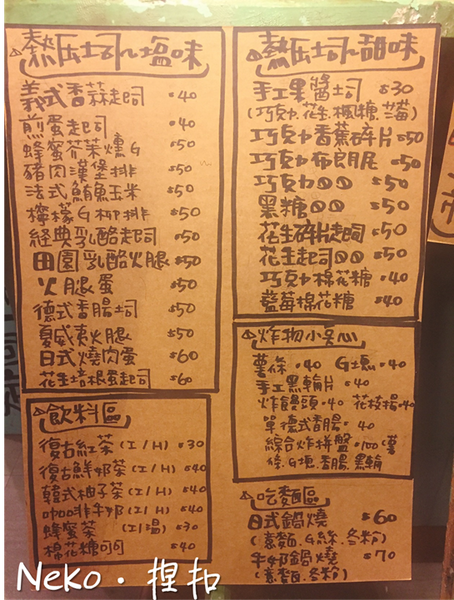 熱压土司～塩味
義式香蒜起司 $40
煎蛋起司 $40
蜂蜜芥茉燻G $50
豬肉漢堡排 $50
法式鮪魚玉米 $50
檸檬G柳排 $50
経典乳酪起司 $50
田園乳酪火腿 $50
火腿蛋 $50
德式香腸土司 $50
夏威夷火腿 $50
日式燒肉蛋 $60
花生培根蛋起司 $60
飲料區
復古紅茶(I/H) $30
復古鮮奶茶(I/H) $40
韓式柚子茶(I/H) $40
咖啡牛奶(I/H) $40
蜂蜜茶 (I/温) $30
棉花糖可可 $40
熱压土司～甜味
手工果醬土司 $30
(巧克力.花生.楓糖.藍莓)
巧克力香蕉碎片 $50
巧克力布朗尼 $50
巧克力QQ $50
黑糖QQ $50
花生碎片起司 $50
花生起司QQ $50
巧克力棉花糖 $40
藍莓棉花糖 $40
炸物小点心
薯條 $40 G塊 $40
手工黑輪片 $40
炸饅頭 $40 花枝捲 $40
單種式香腸 $40
綜合炸拼盤 $100(薯
條.G塊.香腸.黑輪
吃麵區
日式鍋燒 $60
(意麵.G絲.冬粉)
牛奶鍋燒 $70
(意麵.冬粉)
Neko · 捏扣